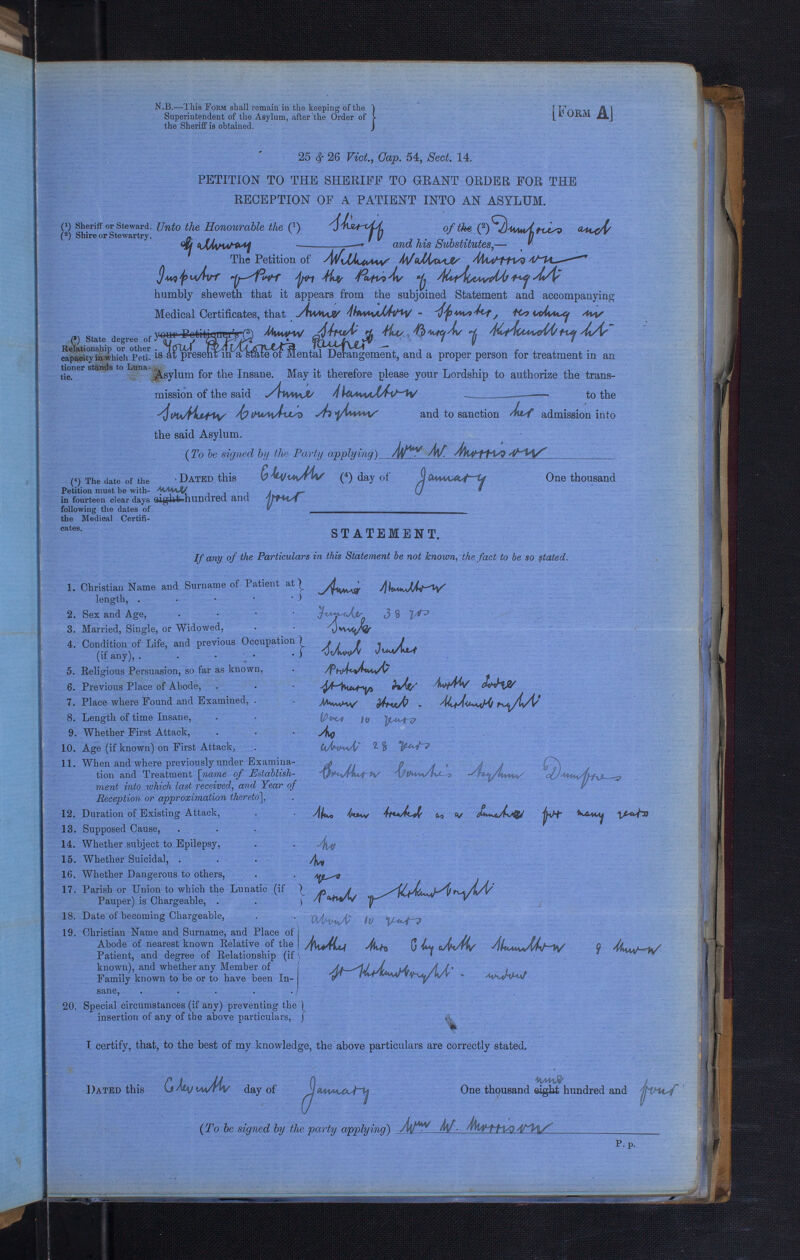 N.B.—This FORM shall remain in the keeping of the
Superintendent of the Asylum, after the Order of
the Sheriff is obtained.
[FORM A]
25 & 26 Vict., Cap. 54, Sect. 14.
PETITION TO THE SHERIFF TO GRANT ORDER FOR THE
RECEPTION OF A PATIENT INTO AN ASYLUM.
(1) Sheriff or Steward.
(2) Shire or Stewartry.
Unto the Honourable the (1) Sheriff of the (2) Dumfries and
Galloway and his Substitutes,—
The Petition of William Wallace Morrison
Inspector of Poor for the Parish of Kirkcudbright
humbly sheweth that it appears from the subjoined Statement and accompanying
Medical Certificates, that Annie Hamilton - Spinster, residing in
(3) State degree of
Relationship or other
capacity in which Peti-
tioner stands to Luna-
tic.
your Petitioner's (3) Street of the Burgh of Kirkcudbright
Your Petitioner's Pauper -
is at present in a state of Mental Derangement, and a proper person for treatment in an
Asylum for the Insane. May it therefore please your Lordship to authorize the trans-
mission of the said Annie Hamilton to the
Southern Counties Asylum and to sanction her admission into
the said Asylum.
(To be signed by the Party applying) Wm W. Morrison
(4) The date of the
Petition must be with-
in fourteen clear days
following the dates of
the Medical Certifi-
cates.
DATED this Eleventh (4) day of January One thousand
nine
eight hundred and four
STATEMENT.
If any of the Particulars in this Statement be not known, the fact to be so stated.
1. Christian Name and Surname of Patient at
length, . Annie Hamilton
2. Sex and Age, Female, 38 yrs
3. Married, Single, or Widowed, Single
4. Condition of Life, and previous Occupation
(if any), . School Teacher
5. Religious Persuasion, so far as known, Protestant
6. Previous Place of Abode, St Marys Isle North Lodge
7. Place where Found and Examined, Street - Kirkcudbright
8. Length of time Insane, Over 10 years
9. Whether First Attack, No
10. Age (if known) on First Attack, about 28 years
11. When and where previously under Examina-
tion and Treatment [name of Establish-
ment into which last received, and Year of
Reception or approximation thereto], Southern Counties Asylum Dumfries
12. Duration of Existing Attack, Has been treated as a Lunatic for many years
13. Supposed Cause,
14. Whether subject to Epilepsy, No
15. Whether Suicidal, . No
16. Whether Dangerous to others, yes
17. Parish or Union to which the Lunatic (if
Pauper) is Chargeable, . Parish of Kirkcudbright
18. Date of becoming Chargeable, about 10 years
19. Christian Name and Surname, and Place of
Abode of nearest known Relative of the
Patient, and degree of Relationship (if
known), and whether any Member of
Family known to be or to have been In-
sane,
Mother Mrs Elizabeth Hamilton 9
St Kirkcudbright - widow
20. Special circumstances (if any) preventing the
insertion of any of the above particulars,
I certify, that, to the best of my knowledge, the above particulars are correctly stated.
nine
DATED this Eleventh day of January One thousand eight hundred and four
(To be signed by the party applying) Wm W. Morrison
P. p.